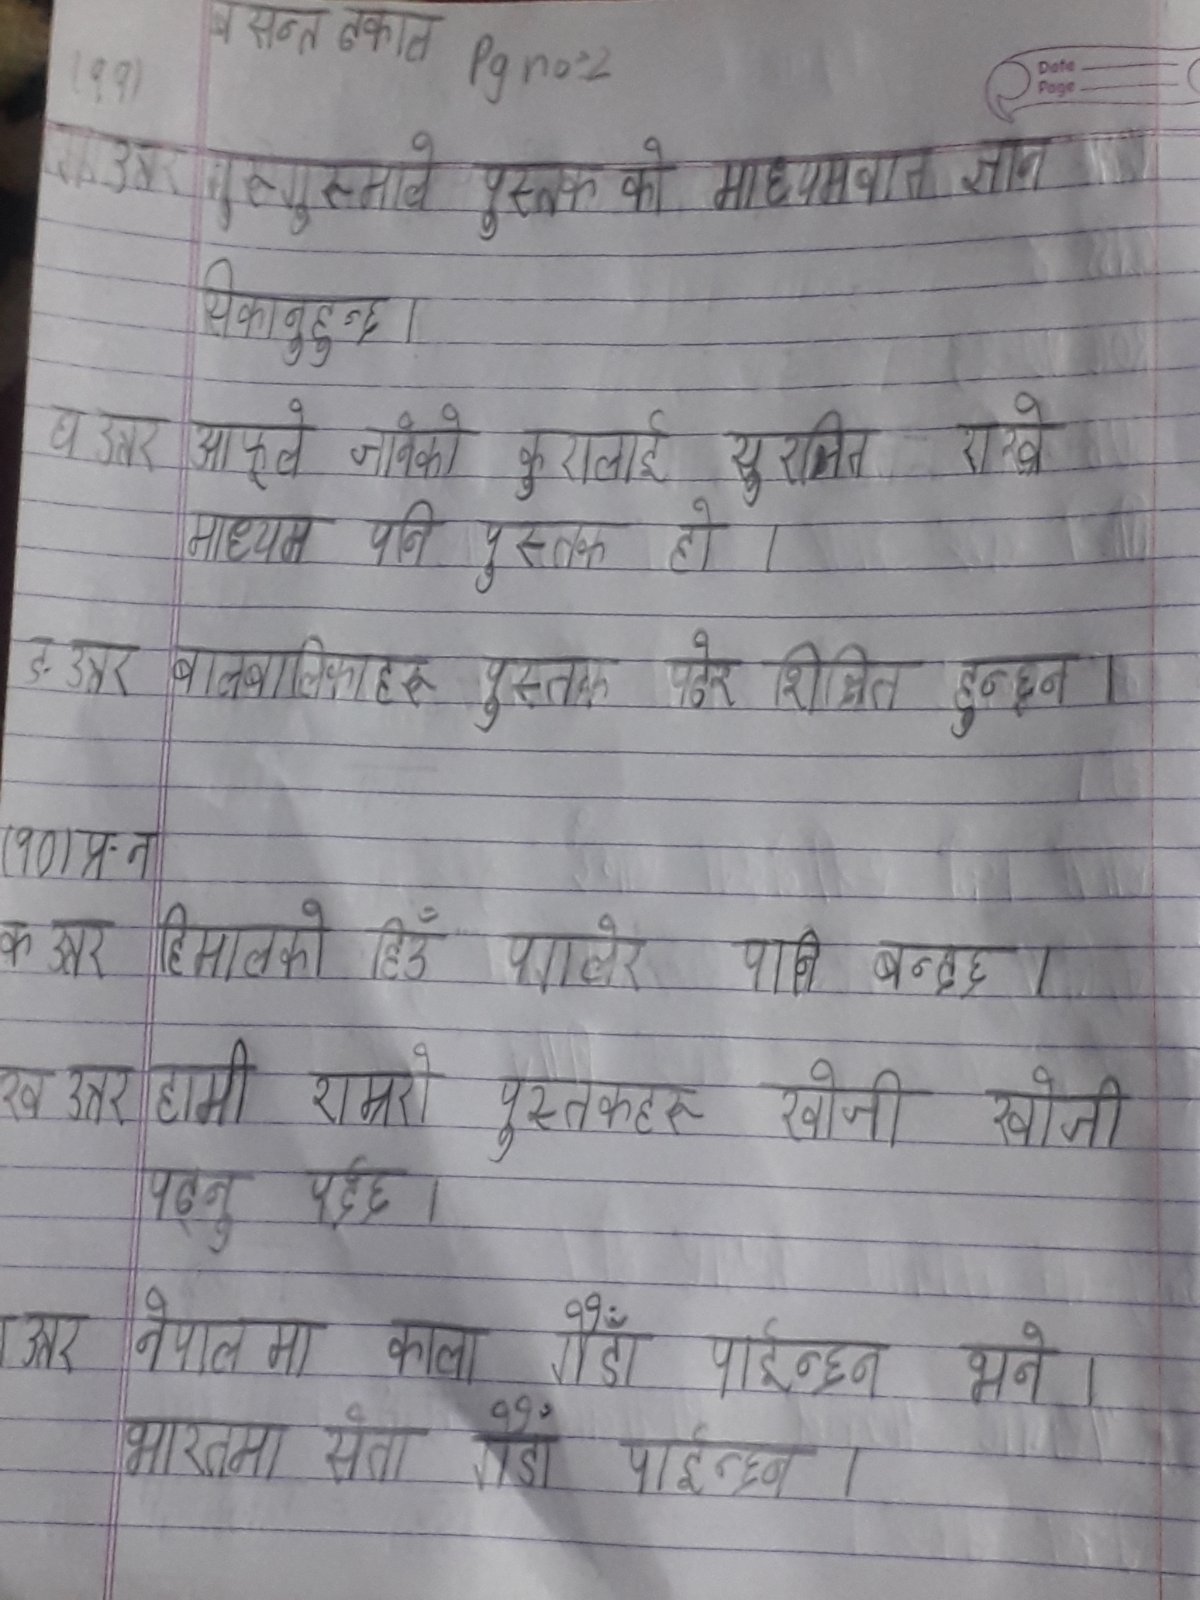 बसन्त ढकाल Pg no:2
(११)
Date
Page
ग उत्तर गुरुगुरुमाले पुस्तक को माध्यमबात ज्ञान
सिकानुहुन्छ ।
घ उत्तर आफूले जानेको कुरालाई सुरक्षित राख्ने
माध्यम पनि पुस्तक हो ।
ङ उत्तर बालबालिकाहरू पुस्तक पढेर शिक्षित हुन्छन ।
(१०) प्र.न
क उत्तर हिमालको हिउँ पग्लेर पानि बन्दछ ।
ख उत्तर हामी राम्ररो पुस्तकहरू खोजी खोजी
पढ्नु पर्दछ ।
ग उत्तर नेपाल मा काला गैँडाँ पाईन्छन भने ।
भारतमा सेता गैँडाँ पाईन्छन ।